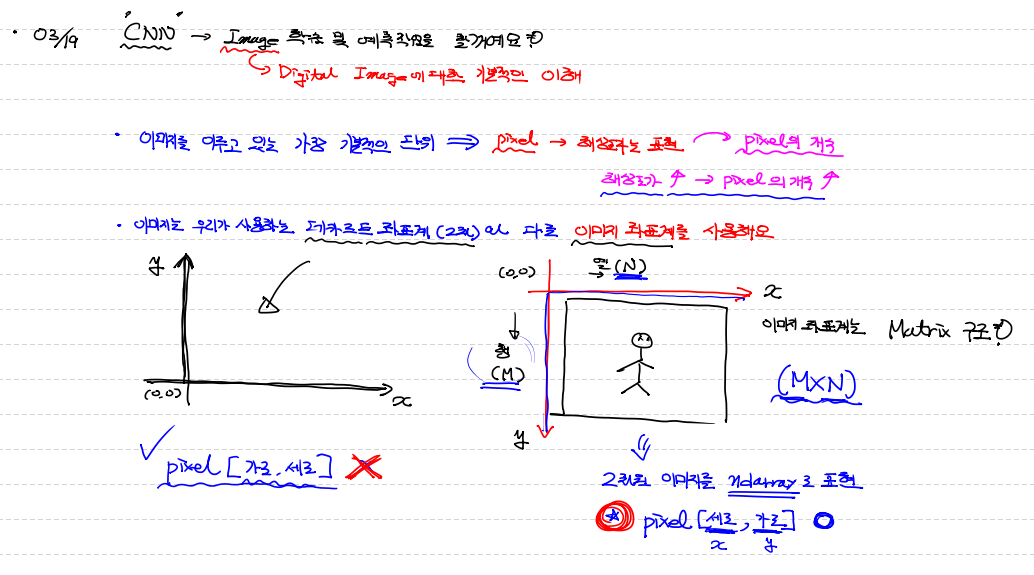 · 03/19 "CNN" → Image 학습 및 예측작업을 할꺼예요?!
↳ Digital Image에 대한 기본적인 이해
· 이미지를 이루고 있는 가장 기본적인 단위 ⇒ pixel → 해상도라는 표현 → pixel의 개수
해상도가 ↑ → pixel의 개수 ↑
· 이미지는 우리가 사용하는 데카르트 좌표계 (2차)와 다른 이미지 좌표계를 사용해요
y
(0,0)
x
(0,0) 열 → (N)
x
행
(M)
y
이미지 좌표계는 Matrix 구조?!
(M×N)
pixel [가로, 세로] X
2차원 이미지를 ndarray로 표현
☆ pixel [세로, 가로] O
x y